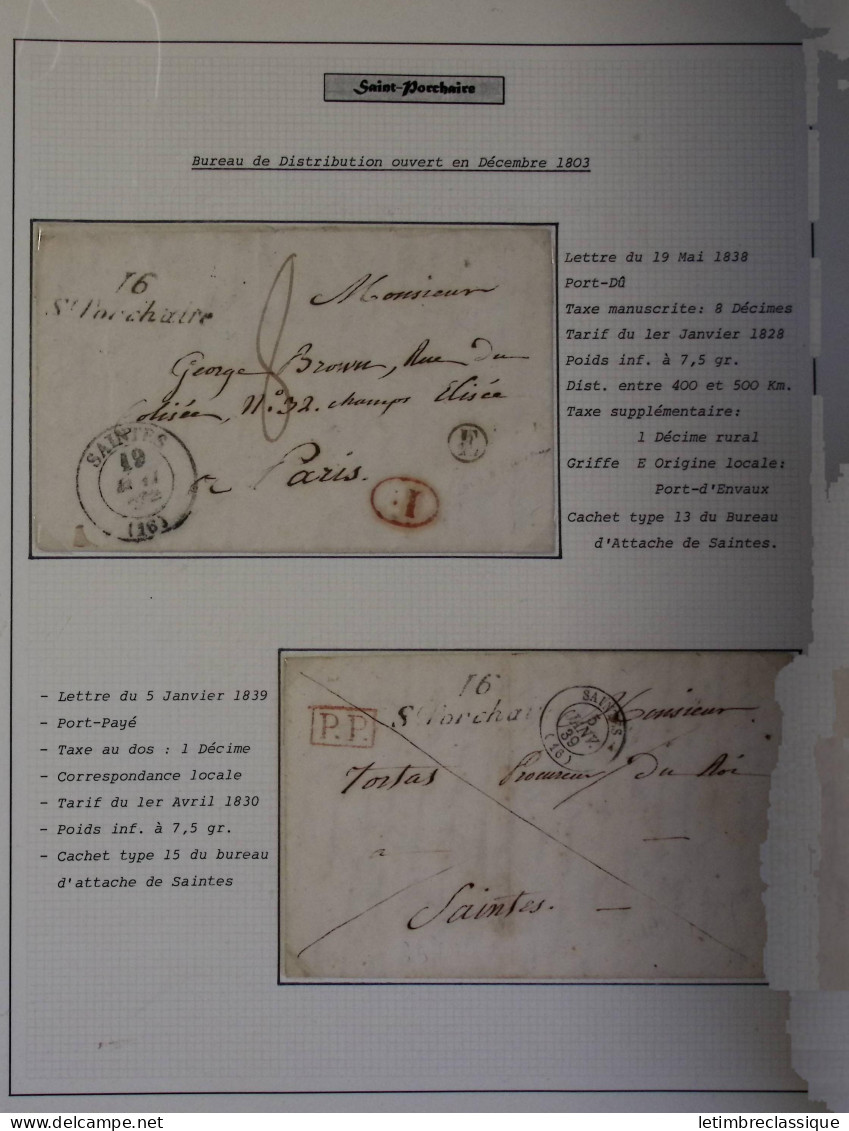 Saint-Porchaire
Bureau de Distribution ouvert en Décembre 1803
16
St Porchaire
8
Monsieur
George Brown, Rue du
Colisée, No. 32. champs Elisée
a Paris.
SAINTES
19
MAI
(16)
E
1
Lettre du 19 Mai 1838
Port-Dû
Taxe manuscrite: 8 Décimes
Tarif du 1er Janvier 1828
Poids inf. à 7,5 gr.
Dist. entre 400 et 500 Km.
Taxe supplémentaire:
1 Décime rural
Griffe E Origine locale:
Port-d'Envaux
Cachet type 13 du Bureau
d'Attache de Saintes.
- Lettre du 5 Janvier 1839
- Port-Payé
- Taxe au dos : 1 Décime
- Correspondance locale
- Tarif du 1er Avril 1830
- Poids inf. à 7,5 gr.
- Cachet type 15 du bureau
d'attache de Saintes
16
St Porchai
P.P.
SAINTES
5
JANV.
39
(16)
Monsieur
Tortas Procureur du Roi
a
Saintes.
delcampe.net
letimbreclassique